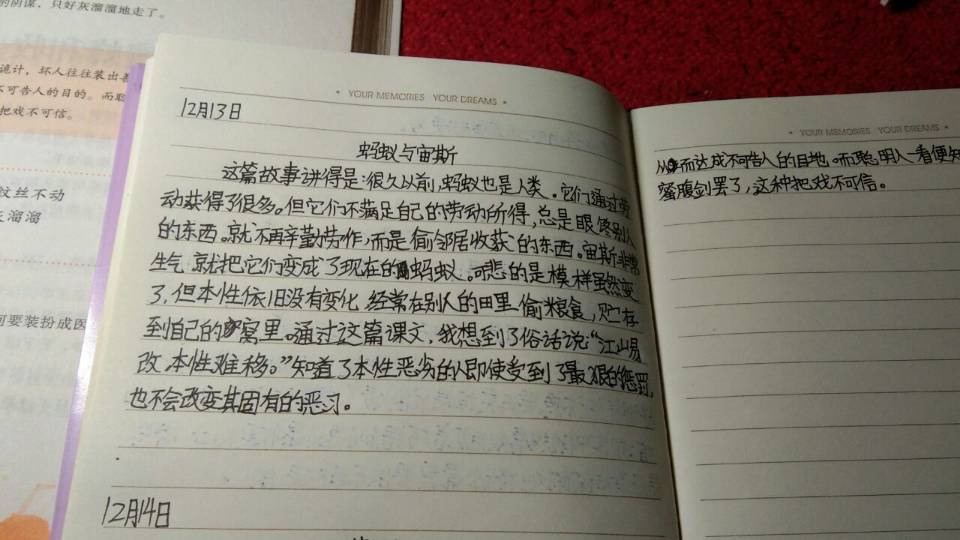 的阴谋，只好灰溜溜地走了。
诡计，坏人往往装出善
不可告人的目的。而聪
把戏不可信。
纹丝不动
灰溜溜
何要装扮成医
YOUR MEMORIES YOUR DREAMS
12月13日
蚂蚁与宙斯
这篇故事讲得是：很久以前，蚂蚁也是人类．它们通过劳
动获得了很多。但它们不满足自己的劳动所得，总是眼馋别人
的东西。就不再辛勤劳作，而是偷邻居收获的东西。宙斯非常
生气 就把它们变成了现在的蚂蚁。可悲的是模样虽然变
了，但本性依旧没有变化，经常在别人的田里偷粮食，贮存
到自己的窝里。通过这篇课文，我想到了俗话说：“江山易
改，本性难移。”知道了本性恶劣的人即使受到了最狠的惩罚，
也不会改变其固有的恶习。
12月14日
YOUR MEMORIES YOUR DREAMS
从而达成不可告人的目地。而聪明人一看便知
蜜腹剑罢了，这种把戏不可信。